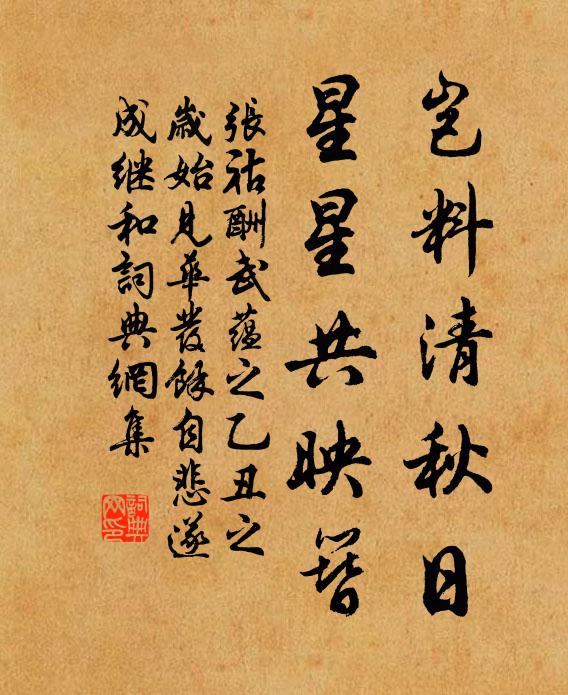 豈料清秋日
星星共映簪
張祜酬武蘊之乙丑之
歲始見華發餘自悲遂
成继和詞典網集
詞典
网印